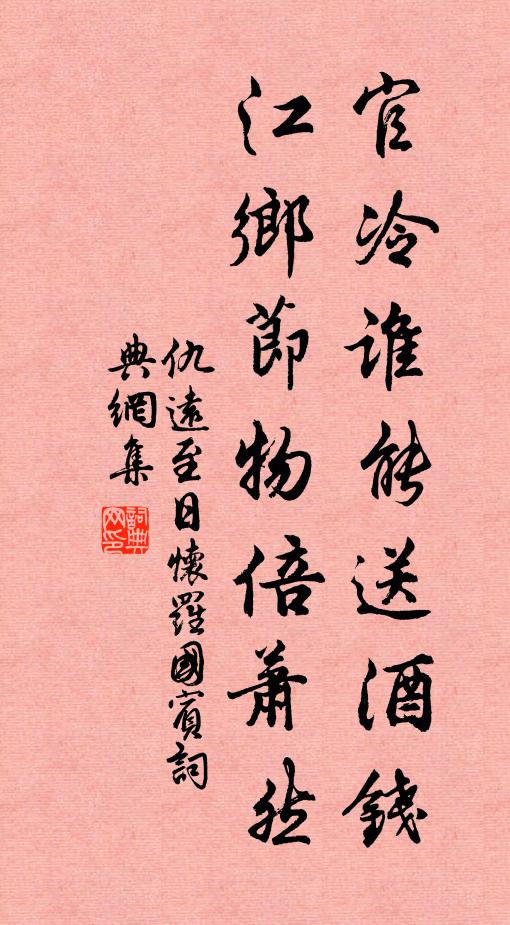 官冷誰能送酒錢
江鄉節物倍蕭然
仇遠至日懷羅國賓詞
典網集
詞典網印